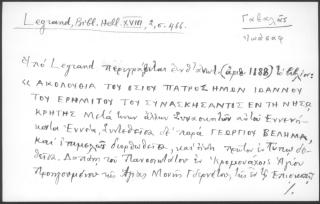 Legrand, Bibl. Hell. XVIII, 2, σ. 466.
Γαβαλᾶς
Ἰωάσαφ
Ὑπὸ Legrand περιγράφεται (ἀριθ. 1188)
« ΑΚΟΛΟΥΘΙΑ ΤΟΥ ΟΣΙΟΥ ΠΑΤΡΟΣ ΗΜΩΝ ΙΩΑΝΝΟΥ
ΤΟΥ ΕΡΗΜΙΤΟΥ ΤΟΥ ΣΥΝΑΣΚΗΣΑΝΤΟΣ ΕΝ ΤΗ ΝΗΣΩ
ΚΡΗΤΗΣ Μετὰ τῶν ἄλλων Συνασκητῶν αὐτοῦ Ἐννενή-
κοντα Ἐννέα, Συντεθεῖσα παρὰ ΓΕΩΡΓΙΟΥ ΒΕΛΗΜΑ,
Καὶ ἐπιμελῶς διορθωθεῖσα, καὶ πρῶτον ἐν Τύποις ἐκδο-
θεῖσα. Δαπάνῃ τοῦ Πανοσιωτάτου ἐν Ἱερομονάχοις Ἁγίου
Προηγουμένου τῆς Ἁγίας Μονῆς Γδερνέτου, τῆς ἐν τῇ Ἐπισκοπῇ
./.